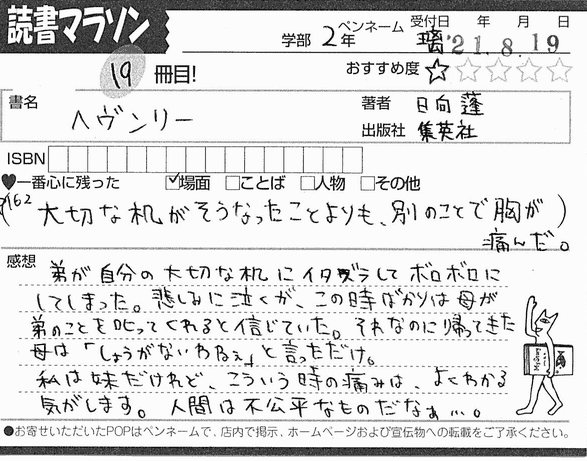 読書マラソン
学部 2年 ペンネーム 璃 受付日 年 月 日
'21.8.19
19 冊目! おすすめ度 ☆☆☆☆☆
書名 ヘヴンリー
著者 日向蓬
出版社 集英社
ISBN
♥一番心に残った ☑場面 □ことば □人物 □その他
(P162 大切な机がそうなったことよりも、別のことで胸が
痛んだ。)
感想 弟が自分の大切な机にイタズラしてボロボロに
してしまった。悲しみに泣くが、この時ばかりは母が
弟のことを叱ってくれると信じていた。それなのに帰ってきた
母は「しょうがないわねぇ」と言っただけ。
私は妹だけれど、こういう時の痛みは、よくわかる
気がします。人間は不公平なものだなぁ…。
●お寄せいただいたPOPはペンネームで、店内で掲示、ホームページおよび宣伝物への転載をご了承ください。